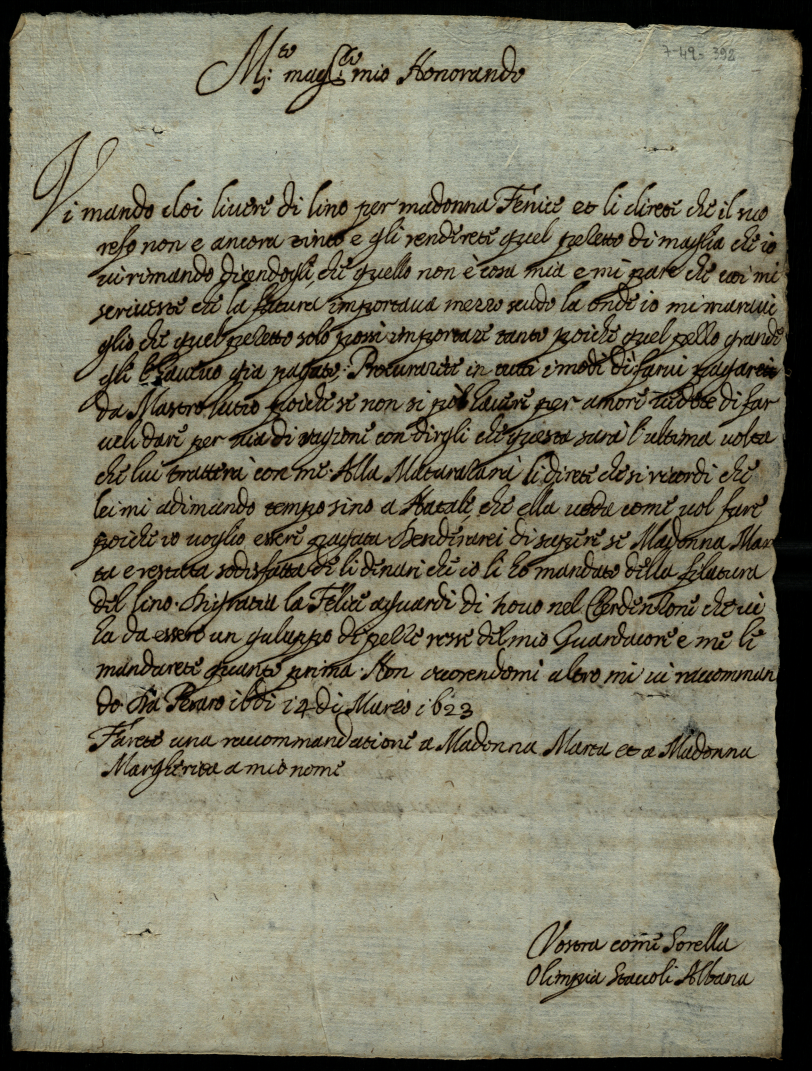 7-49-392
M.to mag.co mio Honorando
Vi mando doi livere di lino per madonna Fenice et li direte che il suo
refo non e ancora tinto e gli renderete quel peletto di maglia che io
vi rimando dicendogli che quello non è cosa mia e mi pare che voi mi
scriveste che la fatura importava mezzo scudo la onde io mi maravi
glio che quel peletto solo possi importare tanto poiche quel pello grande
gli l'havevo gia pagato. Procurarete in tutti i modi di farvi pagare
da Mastro lutio poiche se non si può havere per amore di far
veli dare per via di ragione con dirgli che questa sarà l'ultima volta
che lui tratterà con me. Alla li direte che si ricordi che
lei mi adimando tempo sino a Natale che ella veda come vol fare
poiche io voglio essere pagata. Desiderarei di sapere se Madonna Mar
ta e restata sodisfatta de li dinari che io li ho mandato della filatura
del lino. la Felice aguardi di novo nel che vi
ha da essere un guluppo di pelle rosse del mio Guardacore e me li
mandarete quanto prima. Non occorendomi altro mi vi raccoman
do. Da Pesaro i di 14 di Marzo 1623
Farete una raccommandatione a Madonna Marta et a Madonna
Margherita a mio nome
Vostra come Sorella
Olimpia Staccoli Albana